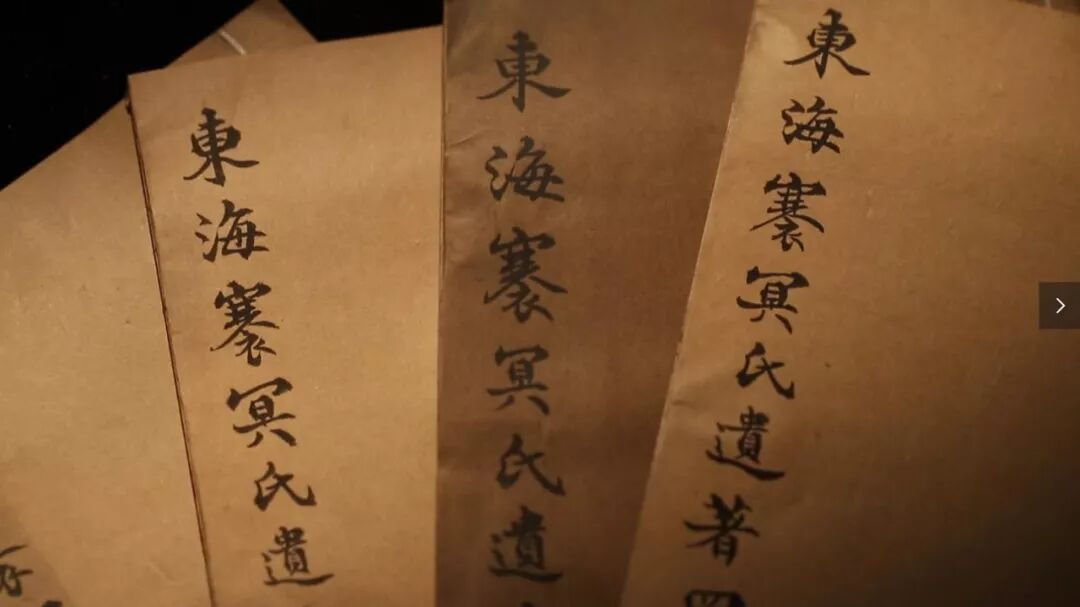 東海褰冥氏遺著
東海褰冥氏遺
東海褰冥氏遺